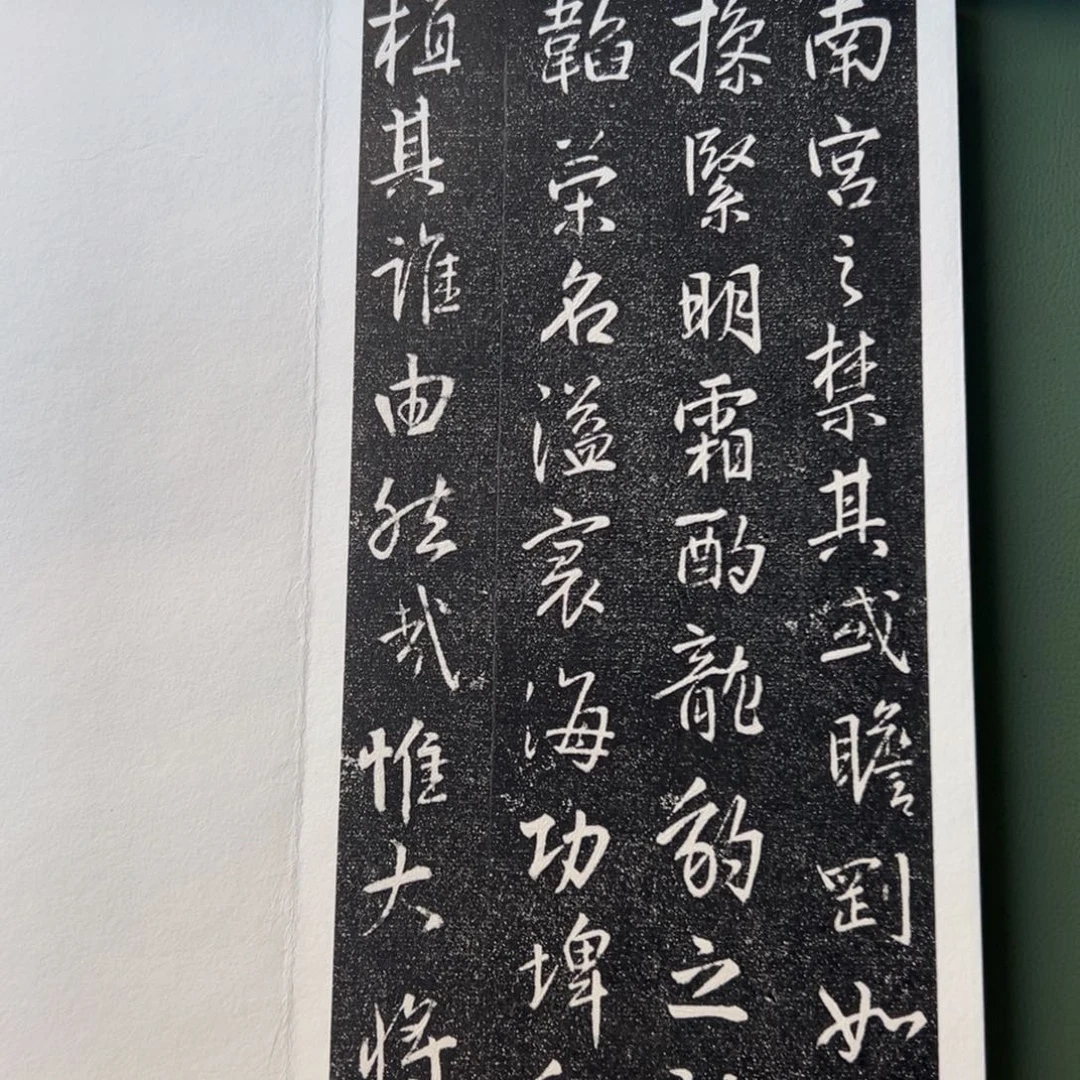 南宮之禁其或瞻剛如
操緊明霜酌龍豹之
韜榮名溢寰海功埤
植其誰由然哉惟大將